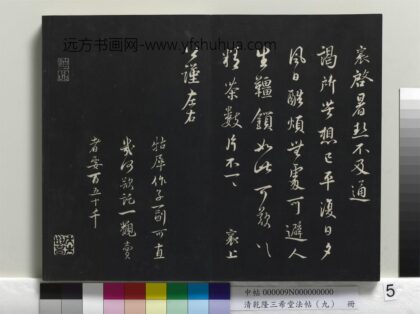 远方书画网-www.yfshuhua.com
襄啓暑熱不及通
謁所苦想已平復日夕
風日酷煩無處可避人
生韁鎖如此可歎〻
精茶數片不一〻 襄上
公謹左右
牯犀作子一副可直
幾何欲託一觀賣
者要百五十千
中帖 000009N000000000
清乾隆三希堂法帖（九） 冊
5